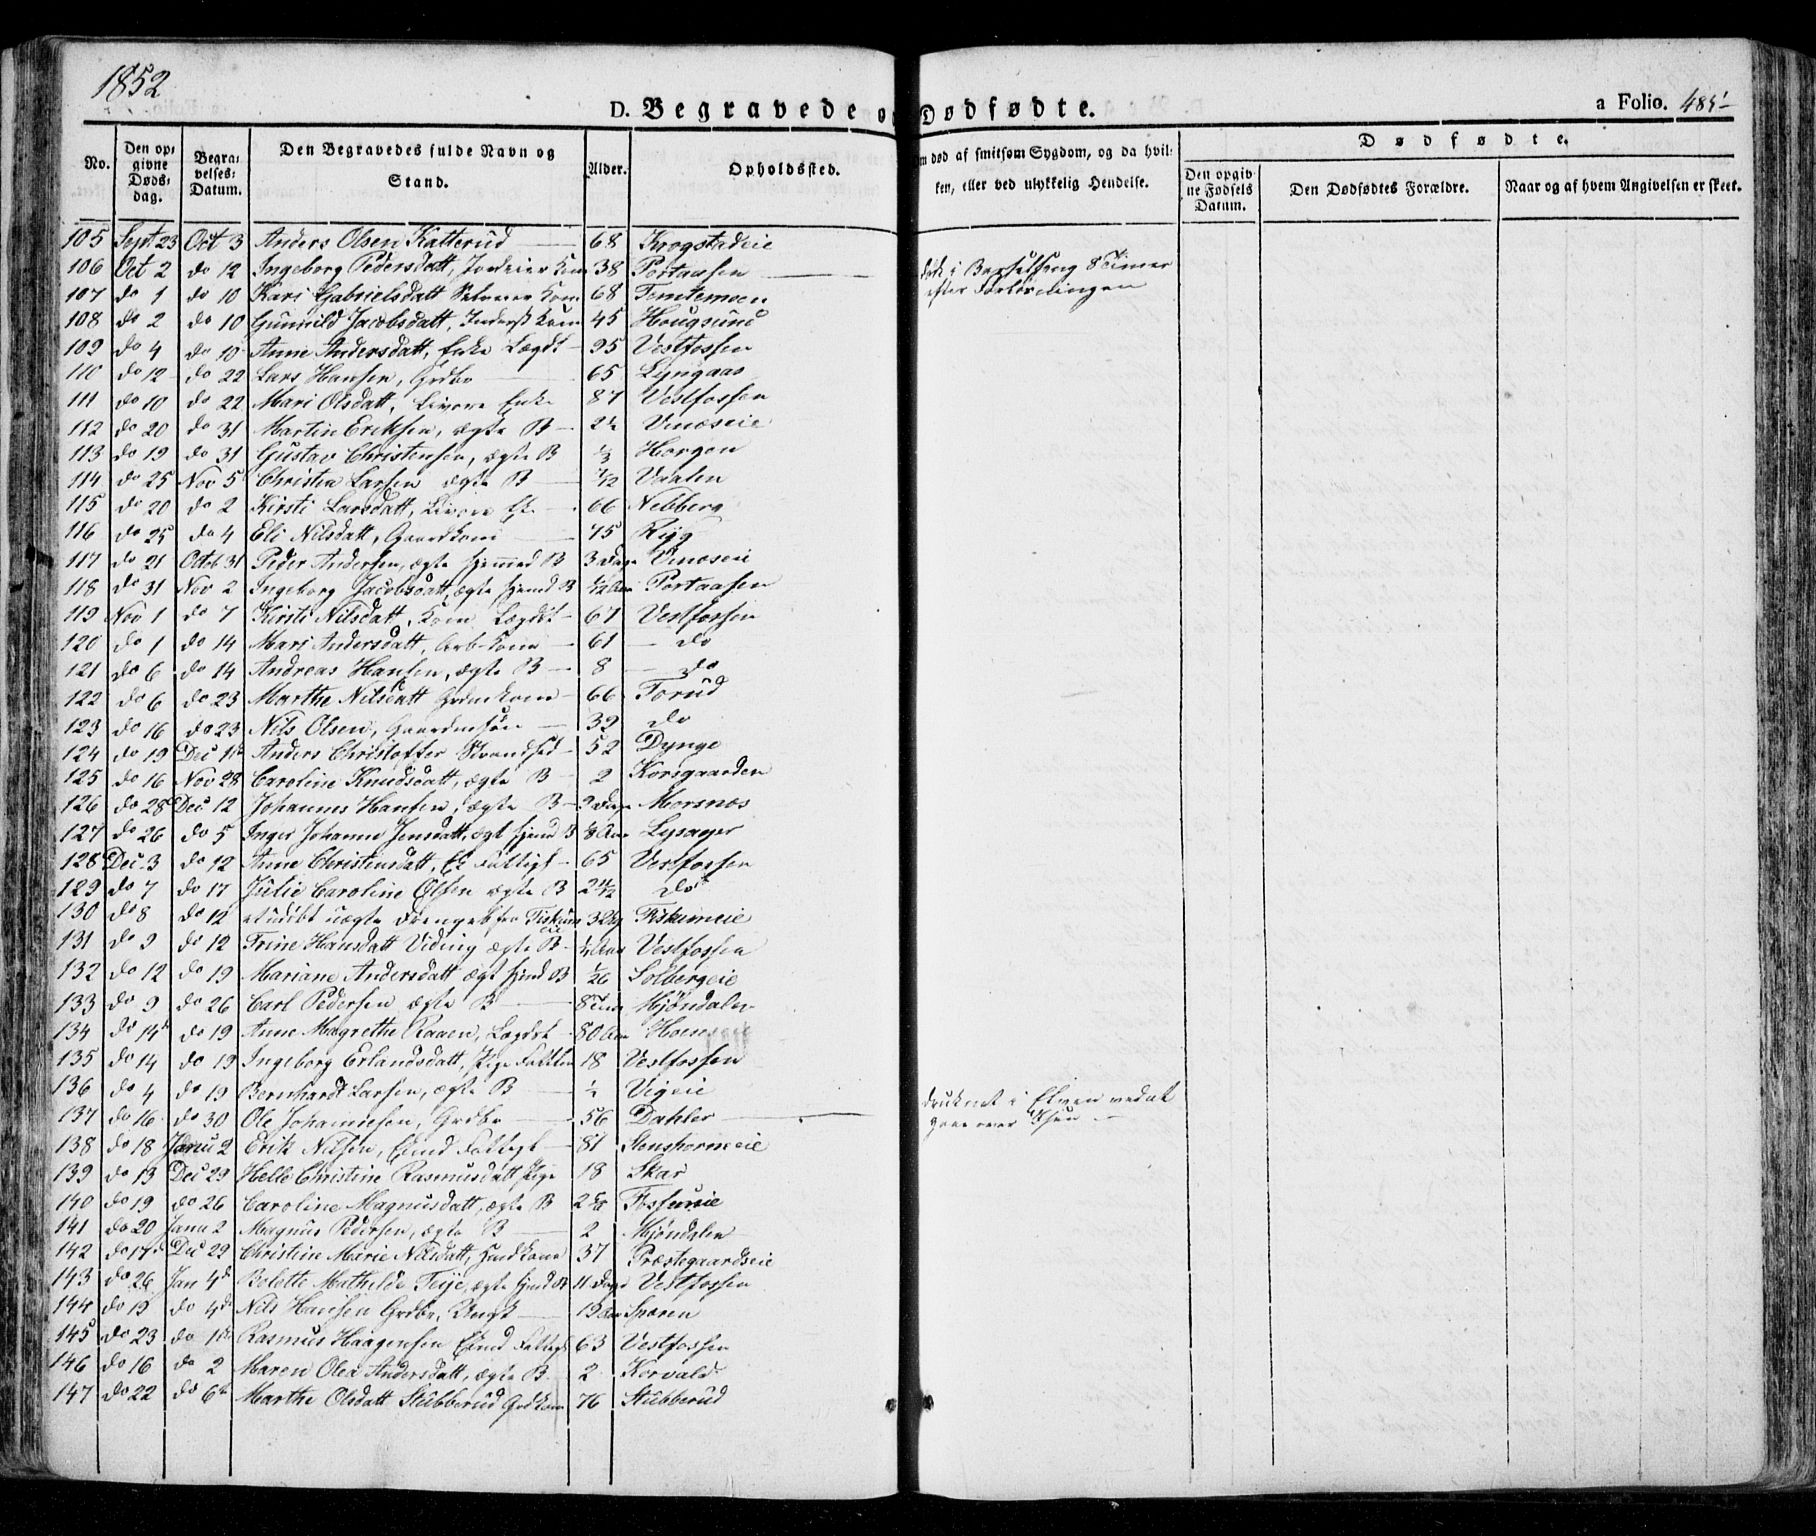 1852
D. Begravede og Dødfødte.
a Folio. 485
No.
Den opgivne Dødsdag.
Begravelses: Datum.
Den Begravedes fulde Navn og Stand.
Alder.
Opholdssted.
Om død af smitsom Sygdom, og da hvilken, eller ved ulykkelig Hendelse.
Dødfødte.
Den opgivne Fødsels Datum.
Den Dødfødtes Forældre.
Naar og af hvem Angivelsen er skeet.
105 Sept. 23 Oct 3 Anders Olsen Katterud 68 Krogstadeie
106 Oct 2 do 12 Ingeborg Pedersdatt, 38 Portaasen død i Barselseng 8 Timer efter Forløsningen
107 do 1 do 10 Kari Gabrielsdatt 68 Temtemoen
108 do 2 do 10 Gunnild Jacobsdatt, 45 Hougsund
109 do 4 do 10 Anne Andersdatt, Enke Lægdt 95 Vestfossen
110 do 12 do 22 Lars Hansen, Grdbr 65 Lyngaas
111 do 10 do 22 Mari Olsdatt, Enke 87 Vestfossen
112 do 20 do 31 Martin Eriksen, ægte B 2½ Vinæseie
113 do 19 do 31 Gustav Christensen, ægte B Horgen
114 do 25 Nov 5 Christen Larsen ægte B 7/12 Vaalen
115 do 20 do 2 Kirsti Larsdatt, 66 Nebberg
116 do 25 do 4 Eli Nilsdatt, Gaardkone 75 Ryg
117 do 21 Octob 31 Peder Andersen, ægte hjemmed B 3 Dage Vinæseie
118 do 31 Nov 2 Ingeborg Jacobsdatt, ægte hjemd B Portaasen
119 Nov 1 do 7 Kirsti Nilsdatt, Kone Lægdt 67 Vestfossen
120 do 1 do 14 Mari Andersdatt, Arb-Kone 61 do
121 do 6 do 14 Andreas Hansen, ægte B 8 do
122 do 6 do 23 Marthe Nilsdatt Grdmkone 66 Forud
123 do 16 do 23 Nils Olsen, Gaardmsøn 32 do
124 do 19 Dec 1st Anders Christoffer Strandsed 52 Dynge
125 do 16 Nov 28 Caroline Knudsdatt, ægte B 2 Korsgaarden
126 do 28 Dec 12 Johannes Hansen, ægte B Dage Morsnæs
127 do 26 do 5 Inger Johanne Jensdatt, ægt hjemd B Lysager
128 Dec 3 do 12 Anne Christensdatt, 65 Vestfossen
129 do 7 do 17 Julie Caroline Olsen ægte B do
130 do 8 do 12 et udøbt uægte Drengeb fra Fiskum Fiskumeie
131 do 9 do 12 Trine Hansdatt Viding ægte B Vestfossen
132 do 12 do 19 Mariane Andersdatt ægt hjemd B Solbergeie
133 do 9 do 26 Carl Pedersen ægte B Mjøndalen
134 do 14 do 19 Anne Magrethe Raaen, Lægdst 80 Aar Hoenseie
135 do 14 do 19 Ingeborg Erlandsdatt, Pige 18 Vestfossen
136 do 4 do 19 Bernhardt Larsen, ægte B Vigeie
137 do 16 do 30 Ole Johannesen, Grdbr 56 Dahler druknet i Elven ved at gaae over Isen
138 do 18 Janu 2 Erik Nilsen, 81 Stenshorneie
139 do 13 Dec 29 Helle Christine Rasmusdatt Pige 18 Skar
140 do 19 do 26 Caroline Magnusdatt, ægte B Fossumeie
141 do 20 Janu 2 Magnus Pedersen, ægte B 2 Mjøndalen
142 do 17 Dec 29 Christine Marie Nilsdatt, Husdkone 37 Præstegaardseie
143 do 26 Jan 4d Bolette Mathilde ægte hjemd B 11 Dage Vestfossen
144 do 19 do 4d Nils Hansen Grdbr, 19 Aar Sporen
145 do 23 do 1st Rasmus Haagensen 63 Vestfossen
146 do 16 do 2 Maren Olea Andersdatt, ægte B 2 Korvald
147 do 22 do 6t Marthe Olsdatt Stubberud Grdkone 76 Stubberud